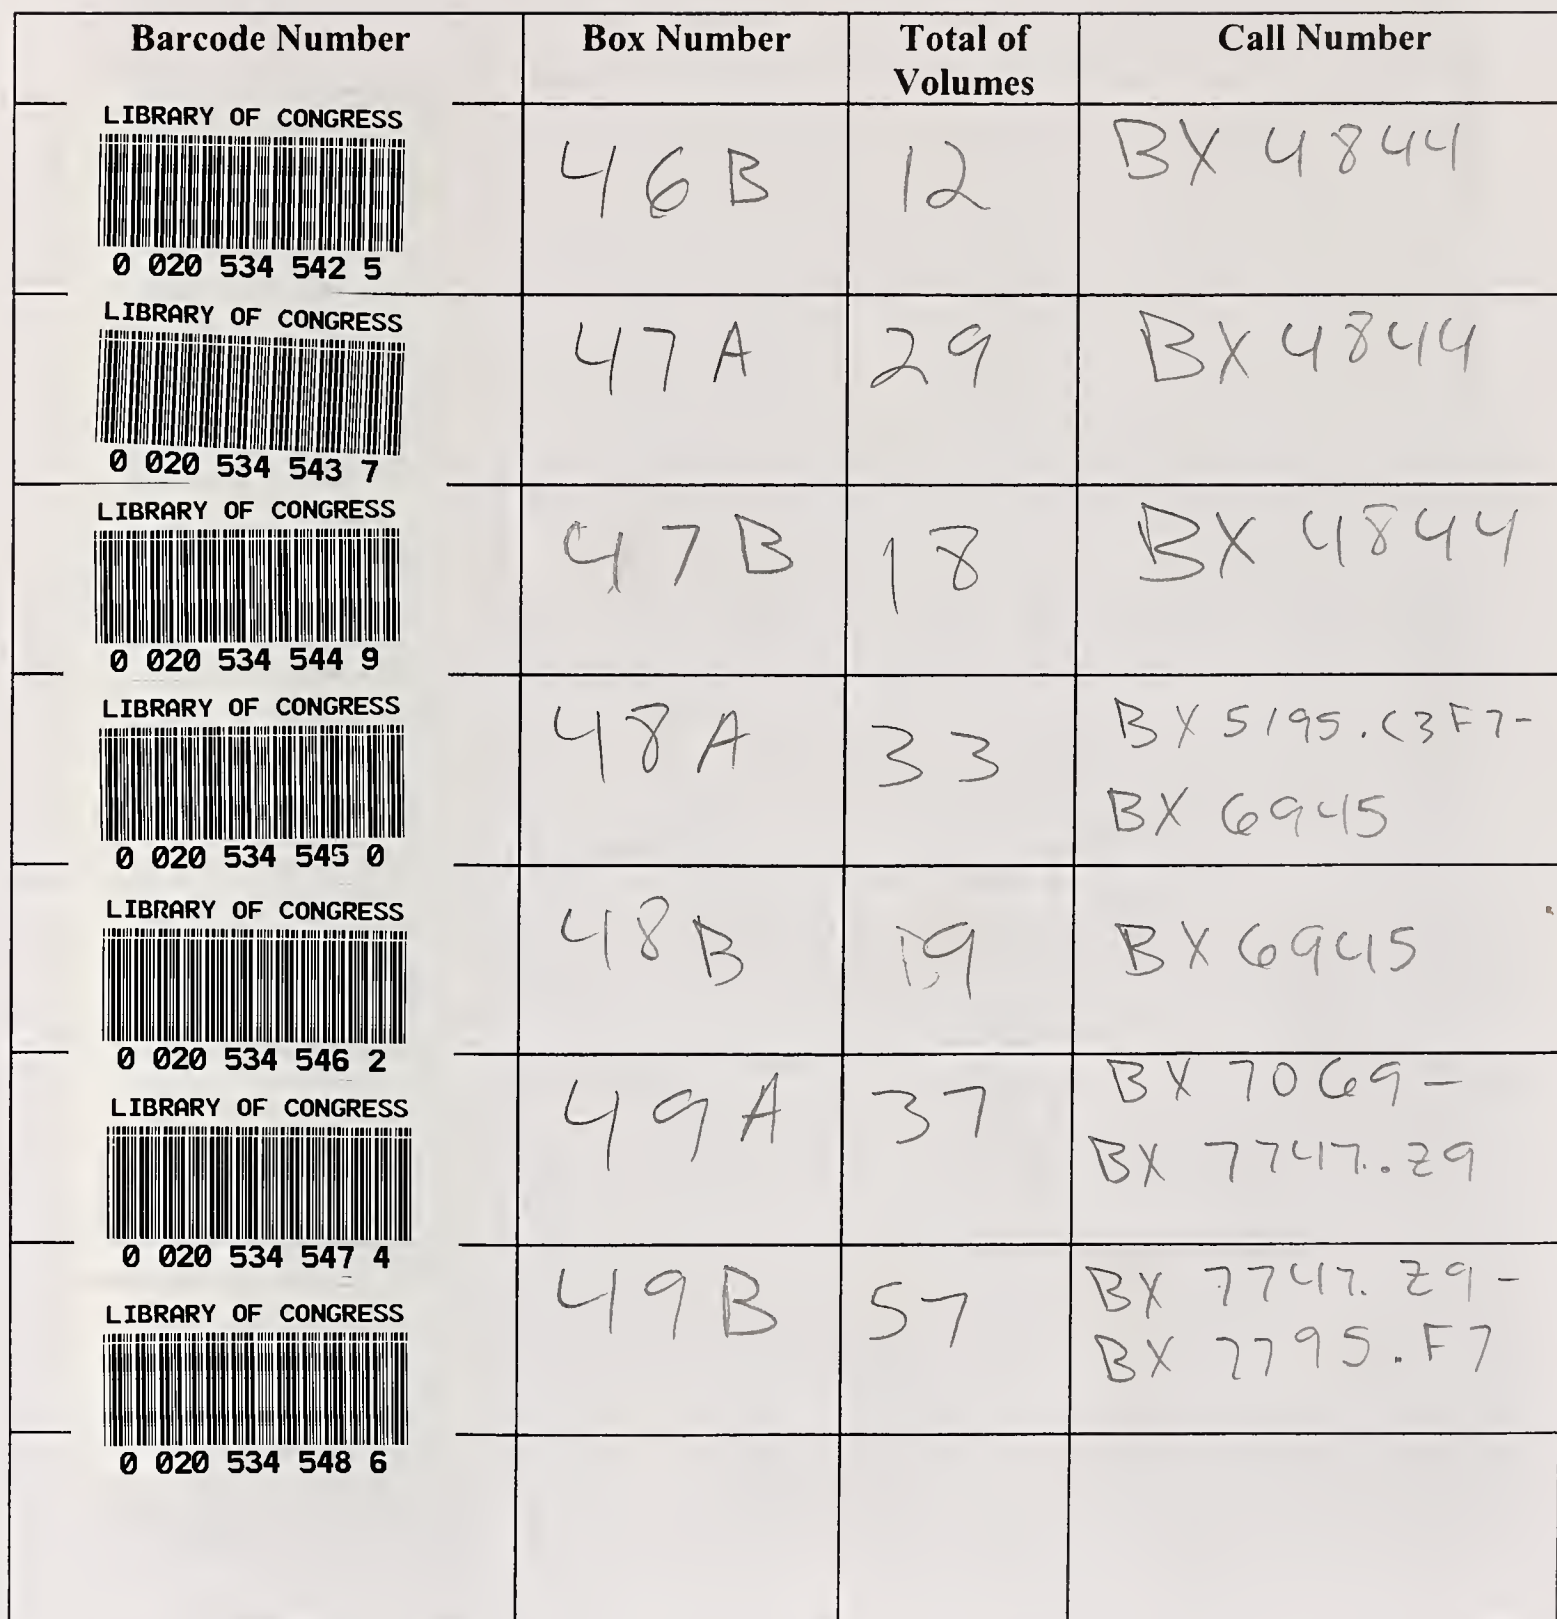 Barcode Number Box Number Total of Call Number
Volumes
LIBRARY OF CONGRESS
0 020 534 542 5
46B 12 BX 4844
LIBRARY OF CONGRESS
0 020 534 543 7
47A 29 BX 4844
LIBRARY OF CONGRESS
0 020 534 544 9
47B 18 BX 4844
LIBRARY OF CONGRESS
0 020 534 545 0
48A 33 BX 5195.C3F7-
BX 6945
LIBRARY OF CONGRESS
0 020 534 546 2
48B 19 BX 6945
LIBRARY OF CONGRESS
0 020 534 547 4
49A 37 BX 7069-
BX 7747.Z9
LIBRARY OF CONGRESS
0 020 534 548 6
49B 57 BX 7747.Z9-
BX 7795.F7